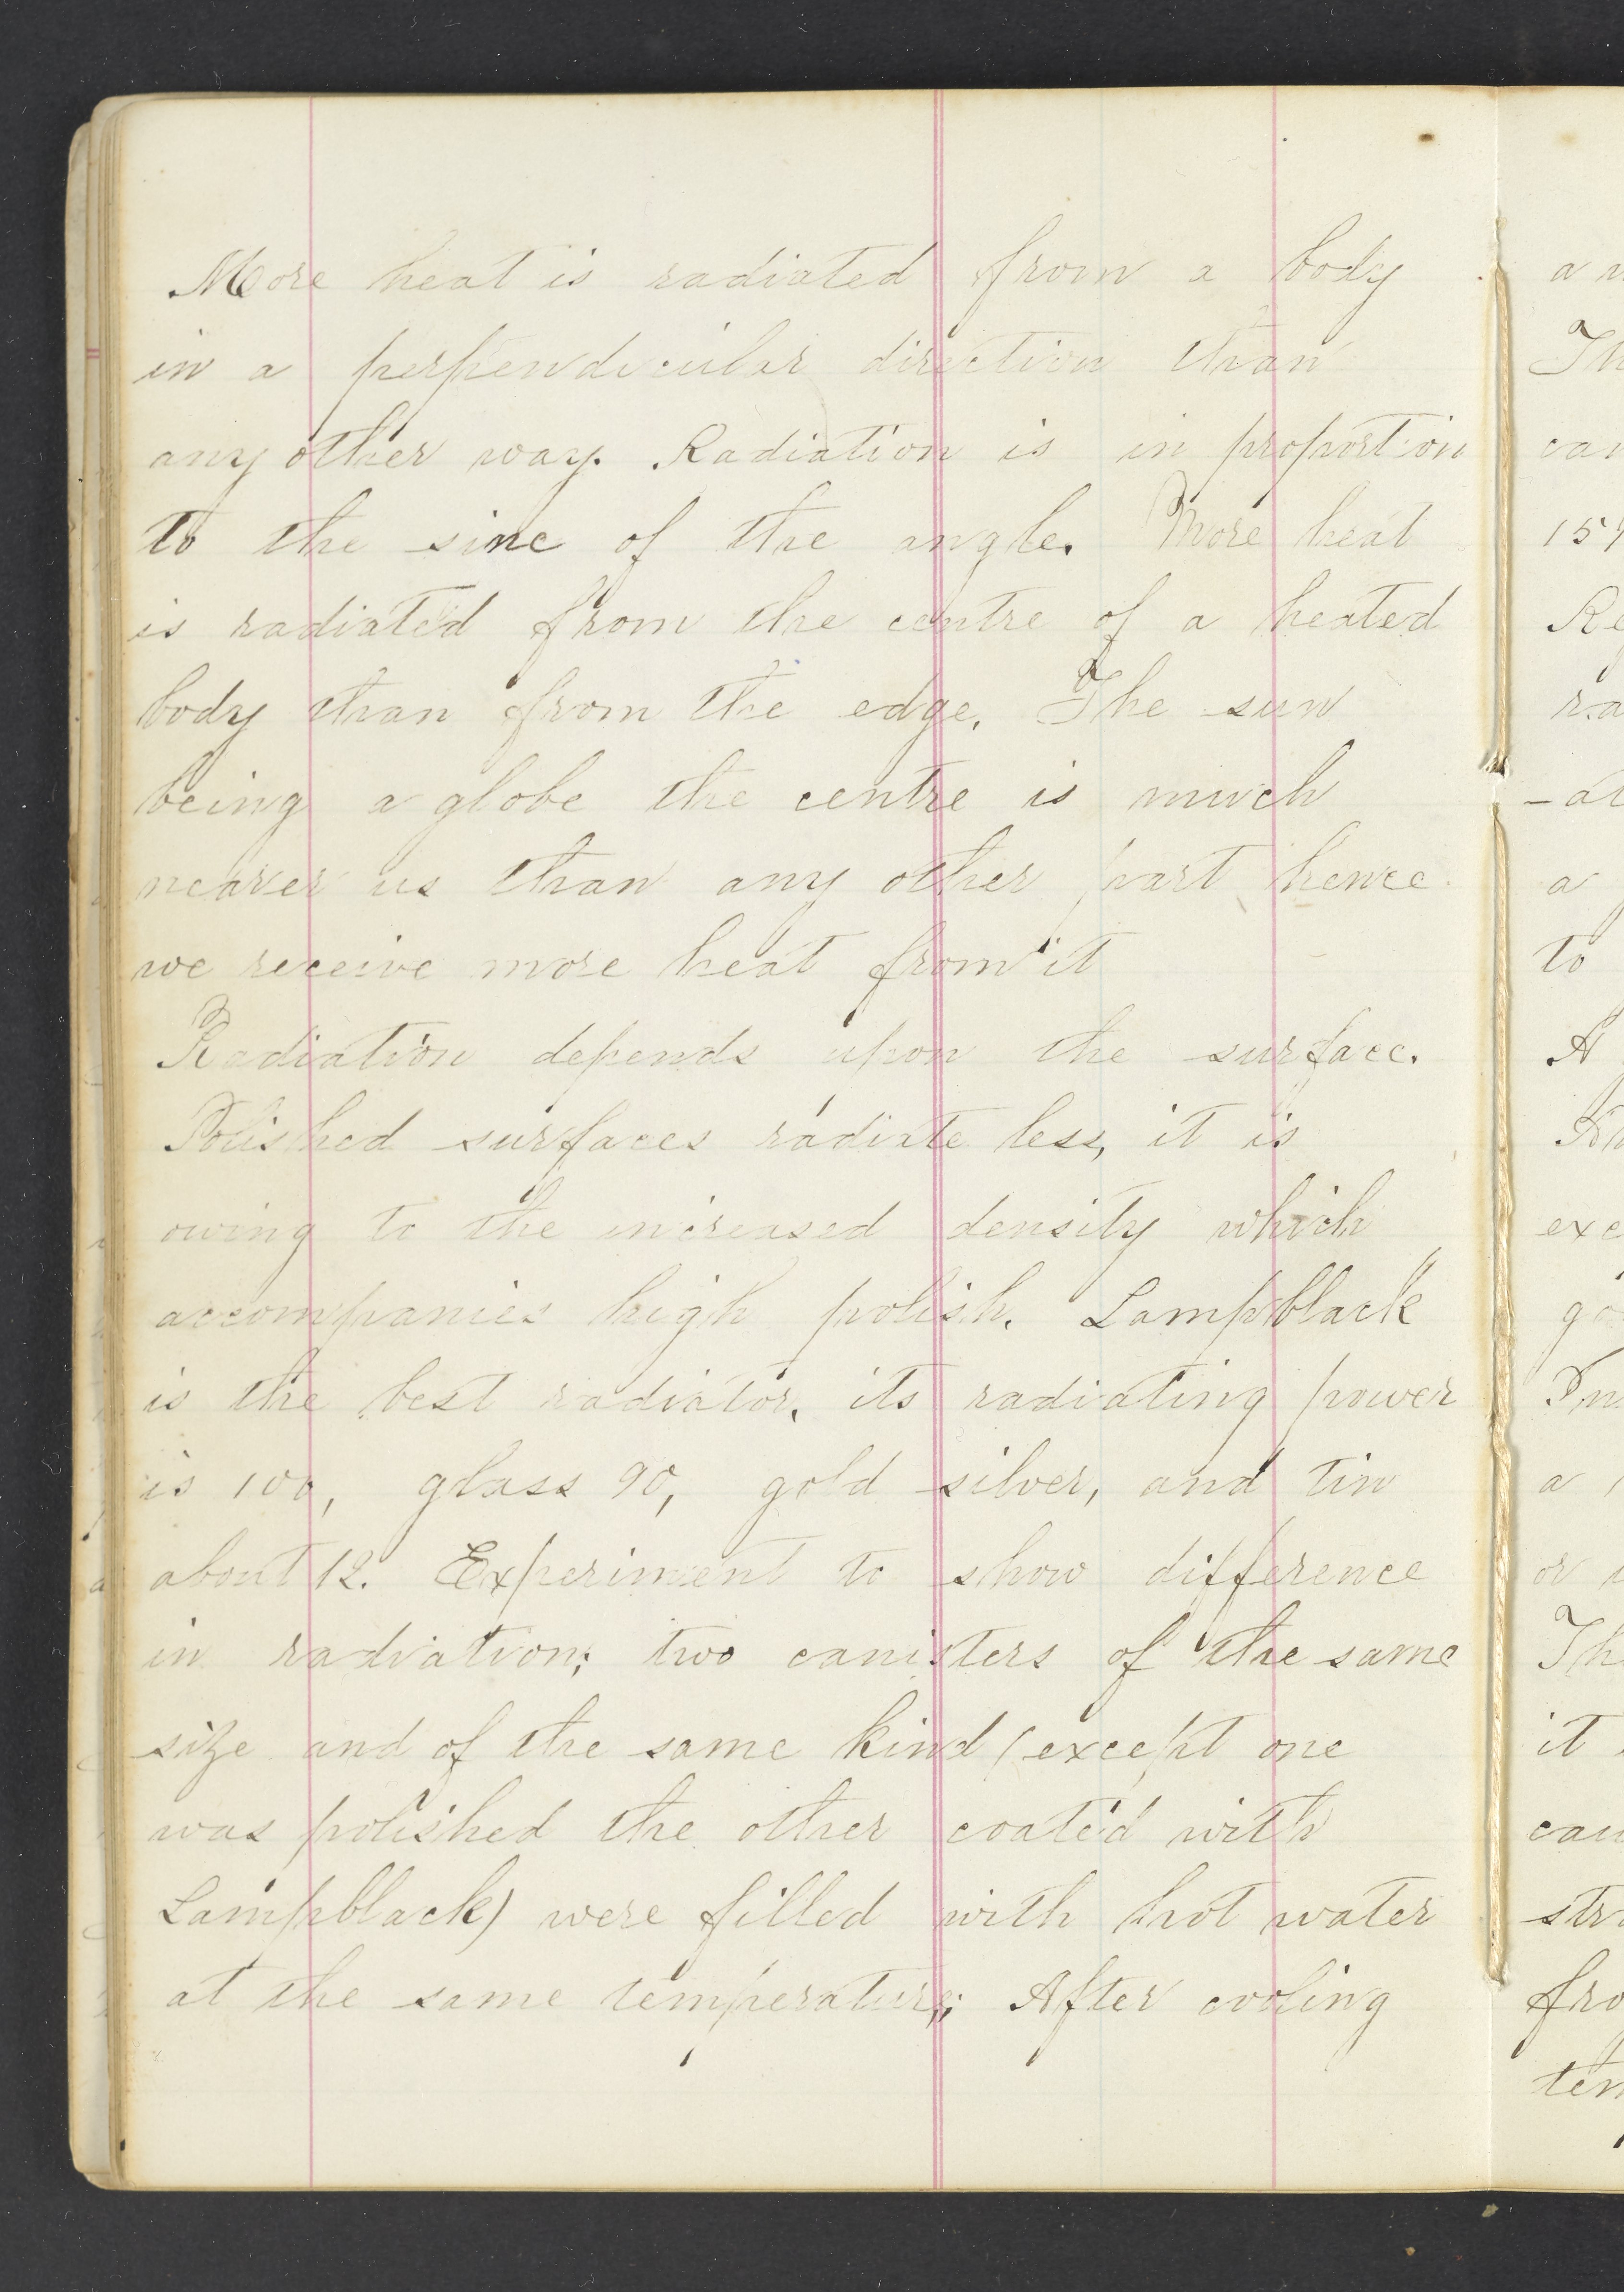 More heat is radiated from a body
in a perpendicular direction than
any other way. Radiation is in proportion
to the sine of the angle. More heat
is radiated from the centre of a heated
body than from the edge. The sun
being a globe the centre is much
nearer us than any other part hence
we receive more heat from it
Radiation depends upon the surface.
Polished surfaces radiate less, it is
owing to the increased density which
accompanies high polish. Lampblack
is the best radiator, its radiating power
is 100, glass 90, gold silver, and tin
about 12. Experiment to show difference
in radiation; two canisters of the same
size and of the same kind (except one
was polished the other coated with
Lampblack) were filled with hot water
at the same temperature; After cooling
a
Th
can
157
Re
ra
-at
a
to
A
exc
go
a
or
Th
it
cau
str
fro
tem